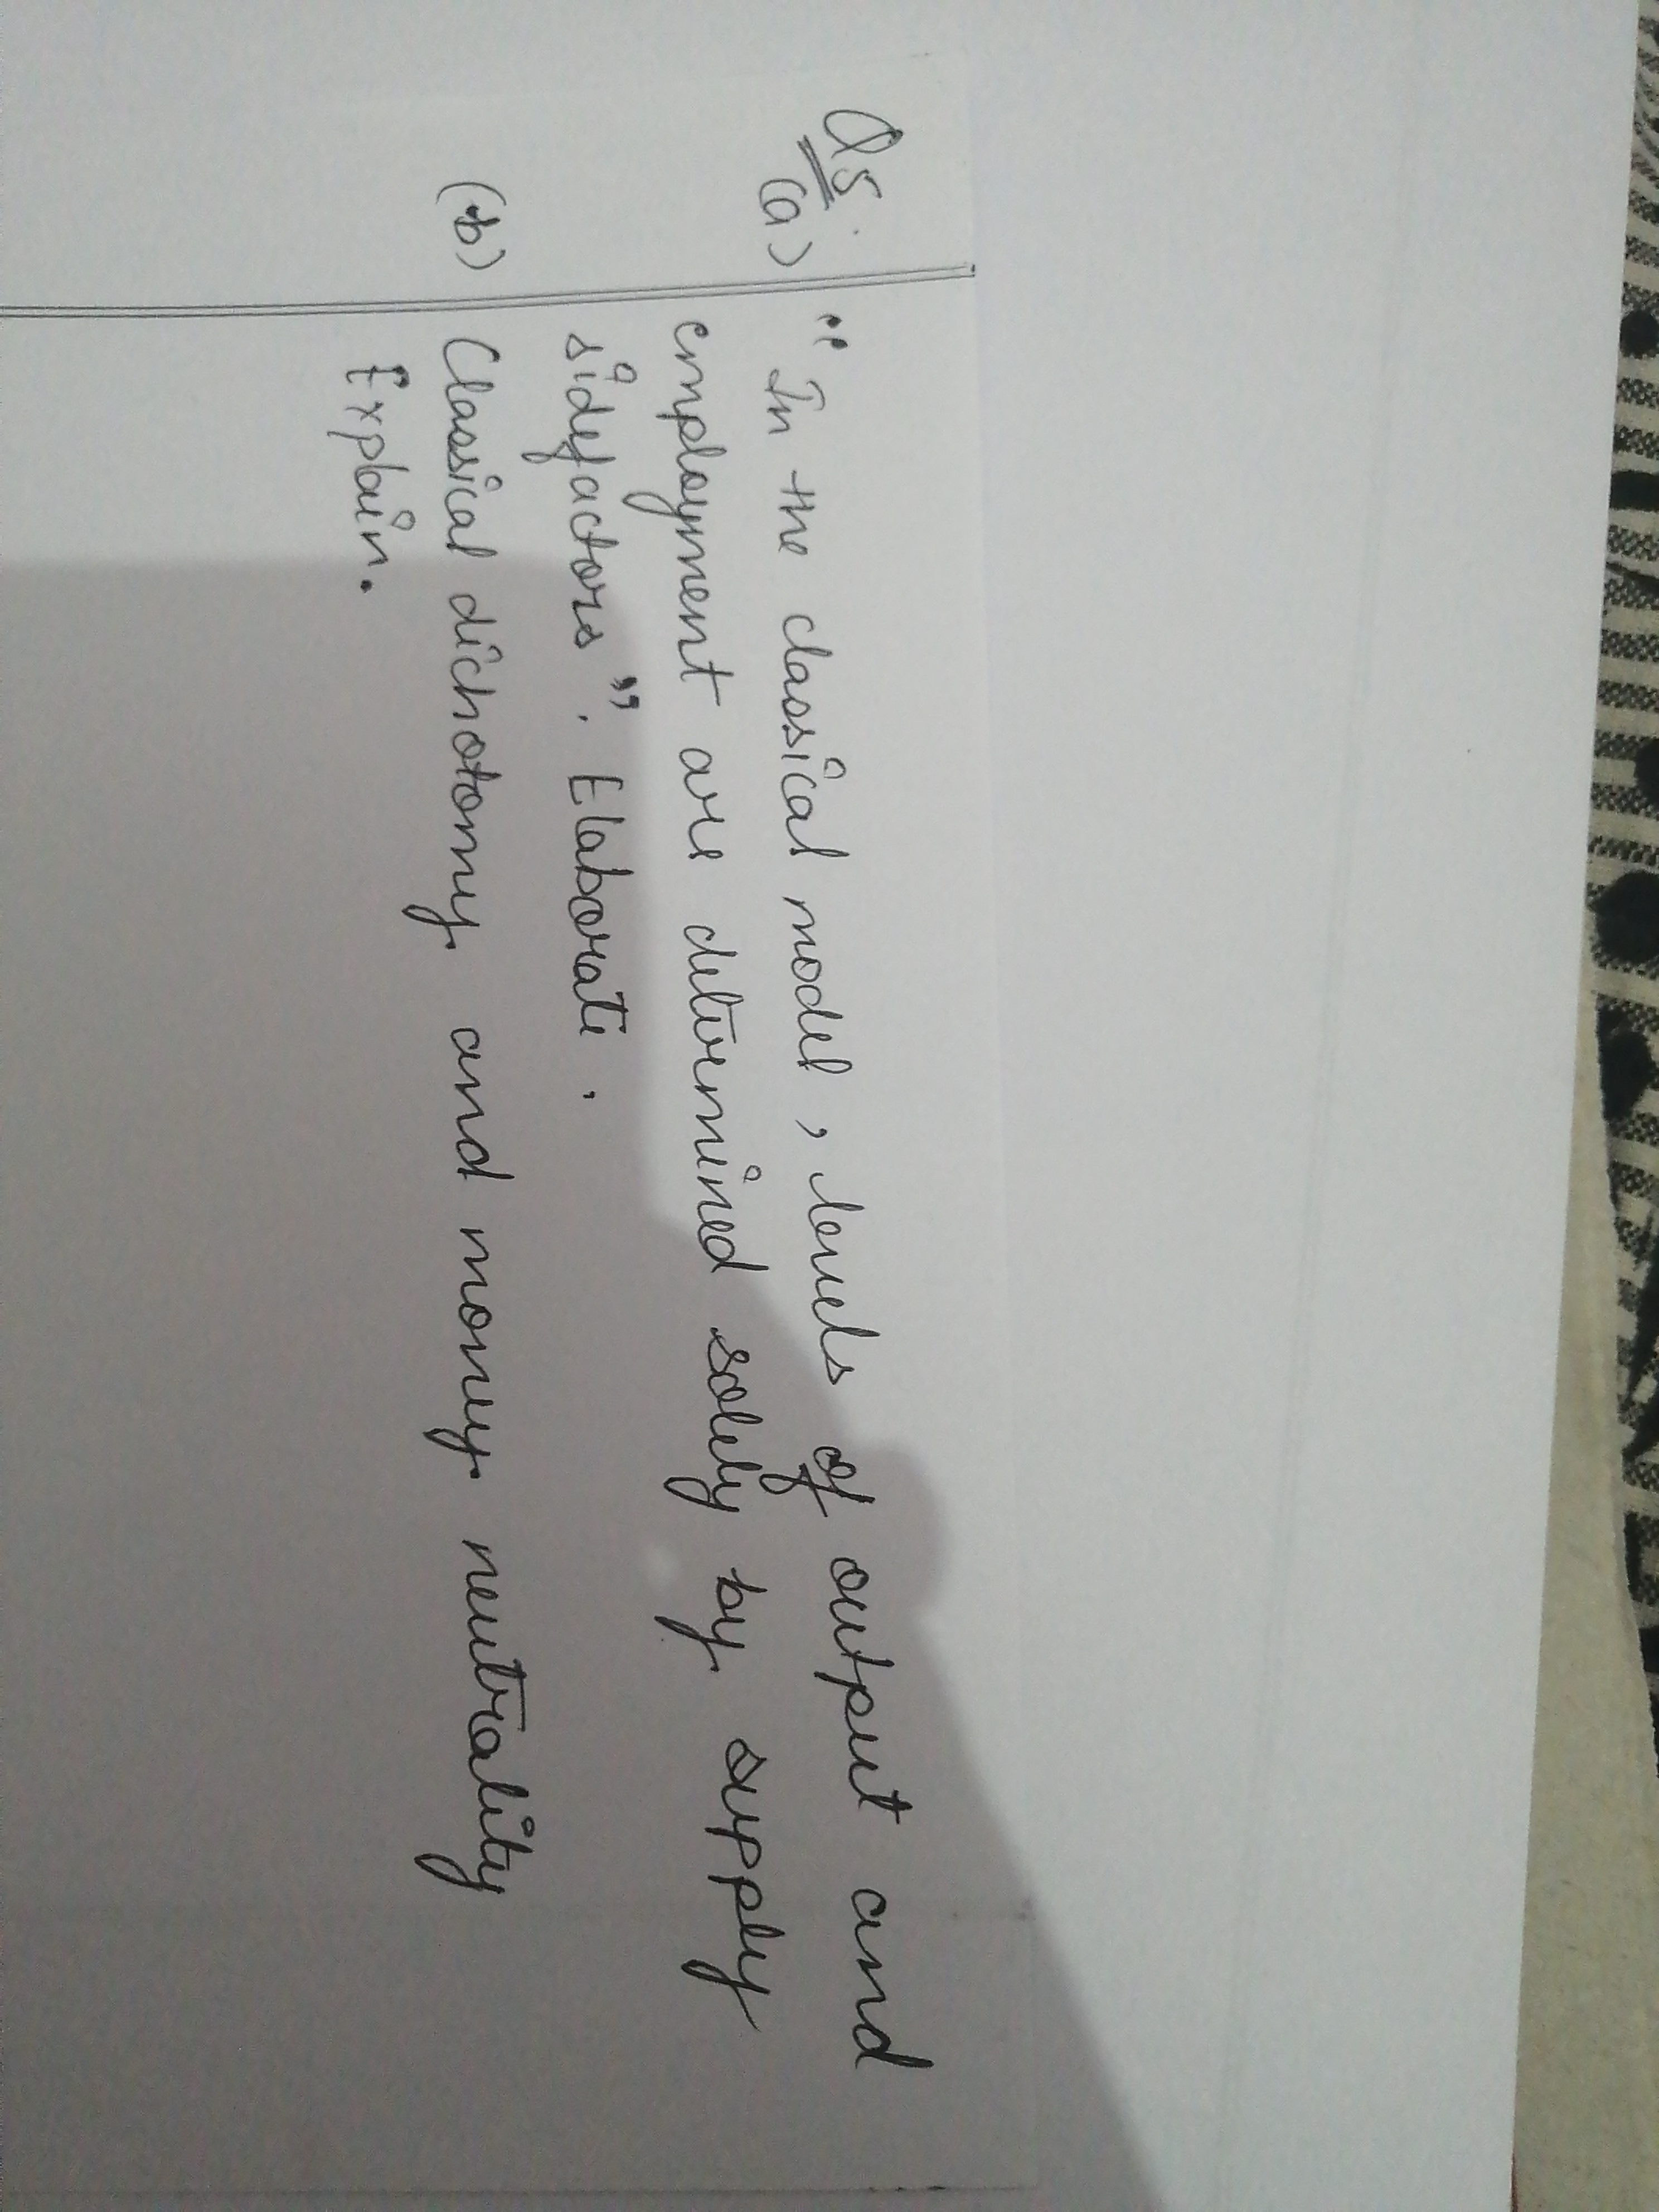 Q5.
(a) "In the classical model, levels of output and
employment are determined solely by supply
sidefactors". Elaborate.
(b) Classical dichotomy and money neutrality
Explain.